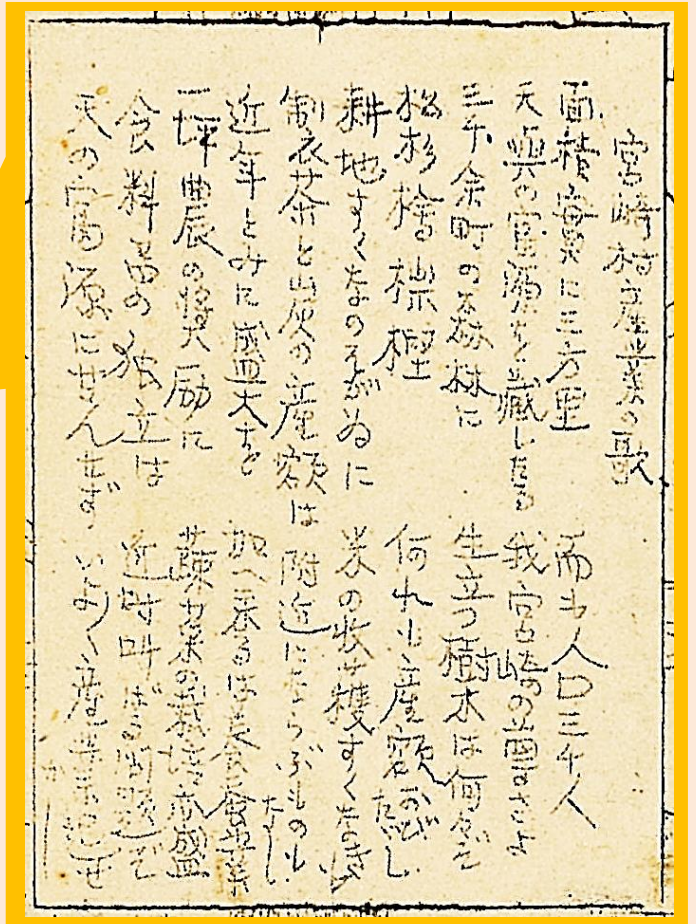 宮崎村産業の歌
面積実に三方里　而も人口三千人
天與の富源を蔵したる　我宮崎の豊さよ
三千余町の森林に　生立つ樹木は何々ぞ
松杉檜樅樫　何れも産額おびただし
耕地すくなのそがゐに　米の収穫すくなき
製衣茶と山灰の産額は　附近にならぶものもなし
近年とみに盛大を　加へ来るは養蚕業
一坪農の奨励に　蔬菜の栽培亦盛
食料品の独立は　近時叫ばる問題ぞ
天の富源に甘んぜず　いよいよ産業